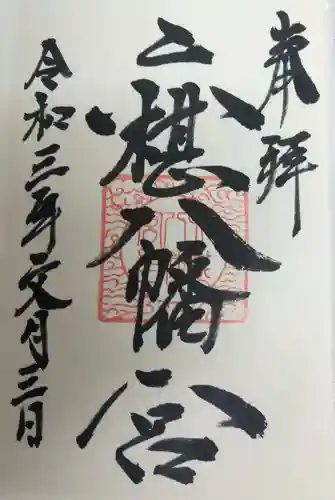 奉拝
二棋八幡宮
令和三年文月三日